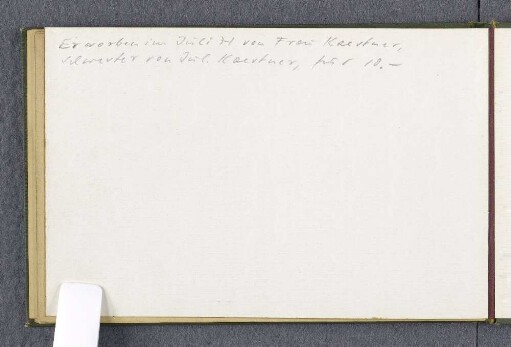 Erworben im Juli 71 von Frau Kaestner,
Schwester von Jul. Kaestner, für 10.–